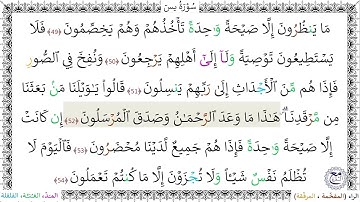 سُورَةُ يسٓ
مَا يَنظُرُونَ إِلَّا صَيْحَةً وَٰحِدَةً تَأْخُذُهُمْ وَهُمْ يَخِصِّمُونَ (49) فَلَا
يَسْتَطِيعُونَ تَوْصِيَةً وَلَآ إِلَىٰٓ أَهْلِهِمْ يَرْجِعُونَ (50) وَنُفِخَ فِي ٱلصُّورِ
فَإِذَا هُم مِّنَ ٱلْأَجْدَاثِ إِلَىٰ رَبِّهِمْ يَنسِلُونَ (51) قَالُوا۟ يَٰوَيْلَنَا مَنۢ بَعَثَنَا
مِن مَّرْقَدِنَا ۜ هَٰذَا مَا وَعَدَ ٱلرَّحْمَٰنُ وَصَدَقَ ٱلْمُرْسَلُونَ (52) إِن كَانَتْ
إِلَّا صَيْحَةً وَٰحِدَةً فَإِذَا هُمْ جَمِيعٌ لَّدَيْنَا مُحْضَرُونَ (53) فَٱلْيَوْمَ لَا
تُظْلَمُ نَفْسٌ شَيْـًٔا وَلَا تُجْزَوْنَ إِلَّا مَا كُنتُمْ تَعْمَلُونَ (54)